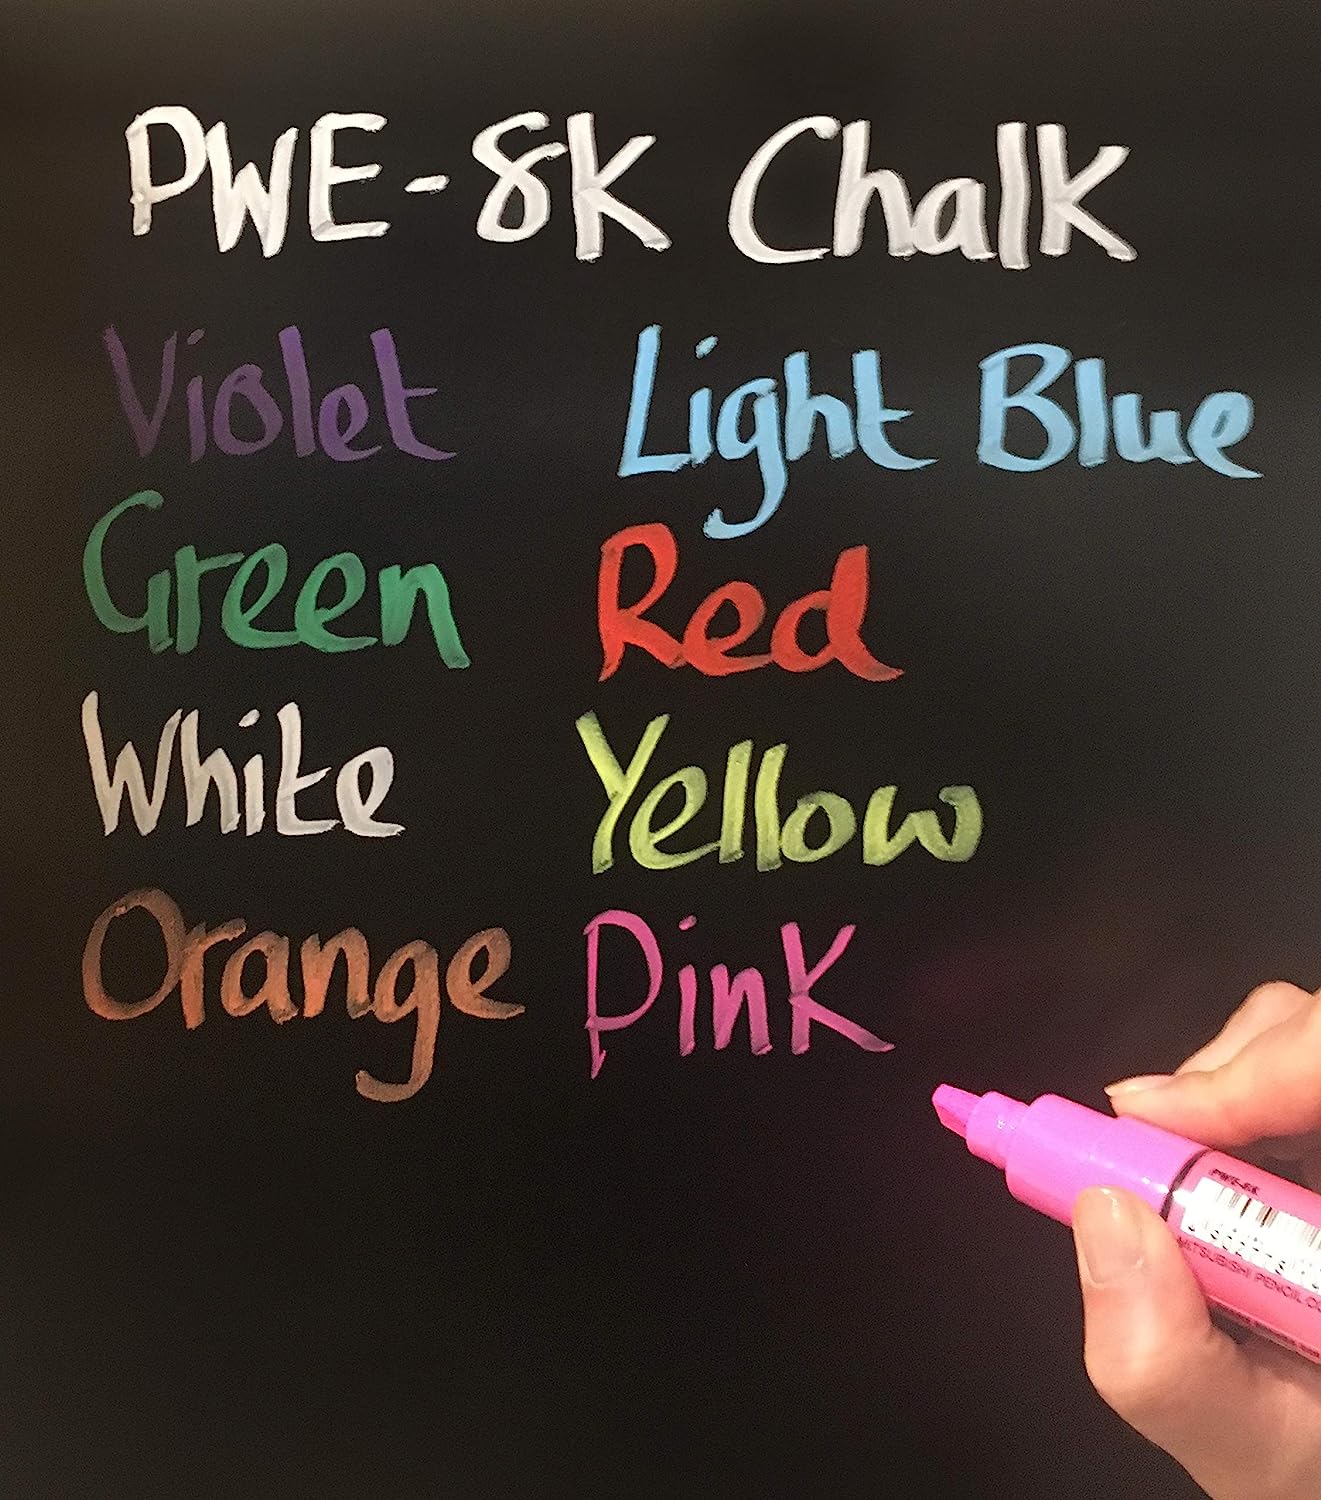 PWE-8K Chalk
Violet Light Blue
Green Red
White Yellow
Orange Pink
PWE-8K
MITSUBISHI PENCIL CO